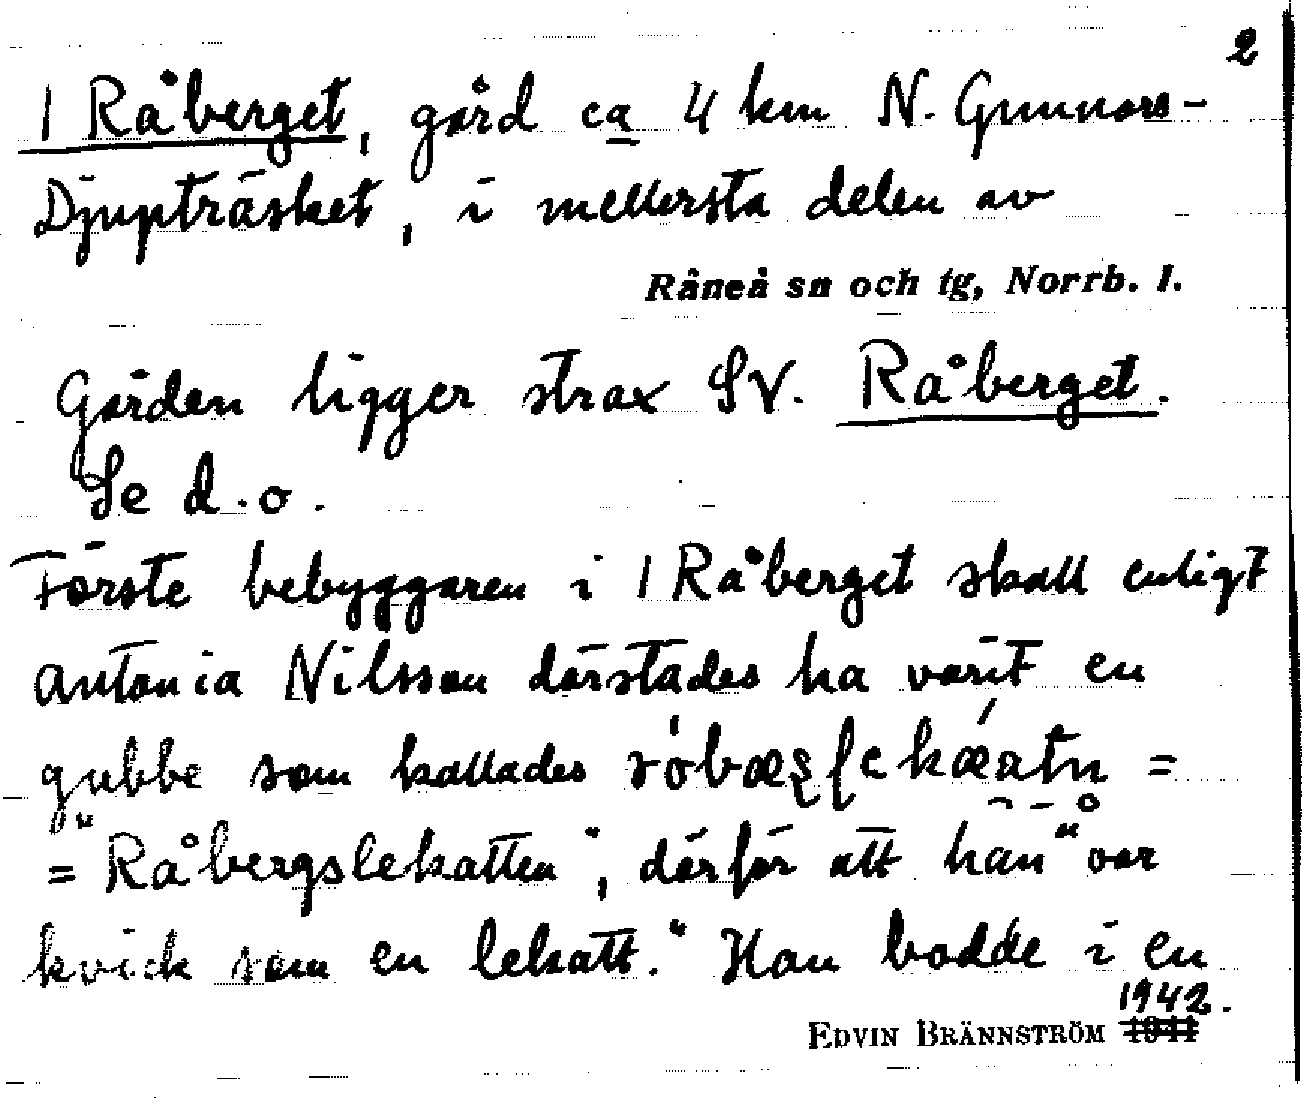 2
1 Råberget, gård ca 4 km N. Gunnars-
Djupträsket, i mellersta delen av
Råneå sn och tg, Norrb. l.
Gården ligger strax SV. Råberget.
Se d.o.
Förste bebyggaren i 1 Råberget skall enligt
Antonia Nilsson därstädes ha varit en
gubbe som kallades =
= "Råbergslekatten", därför att han "var
kvick som en lekatt." Han bodde i en
1942.
EDVIN BRÄNNSTRÖM 1941